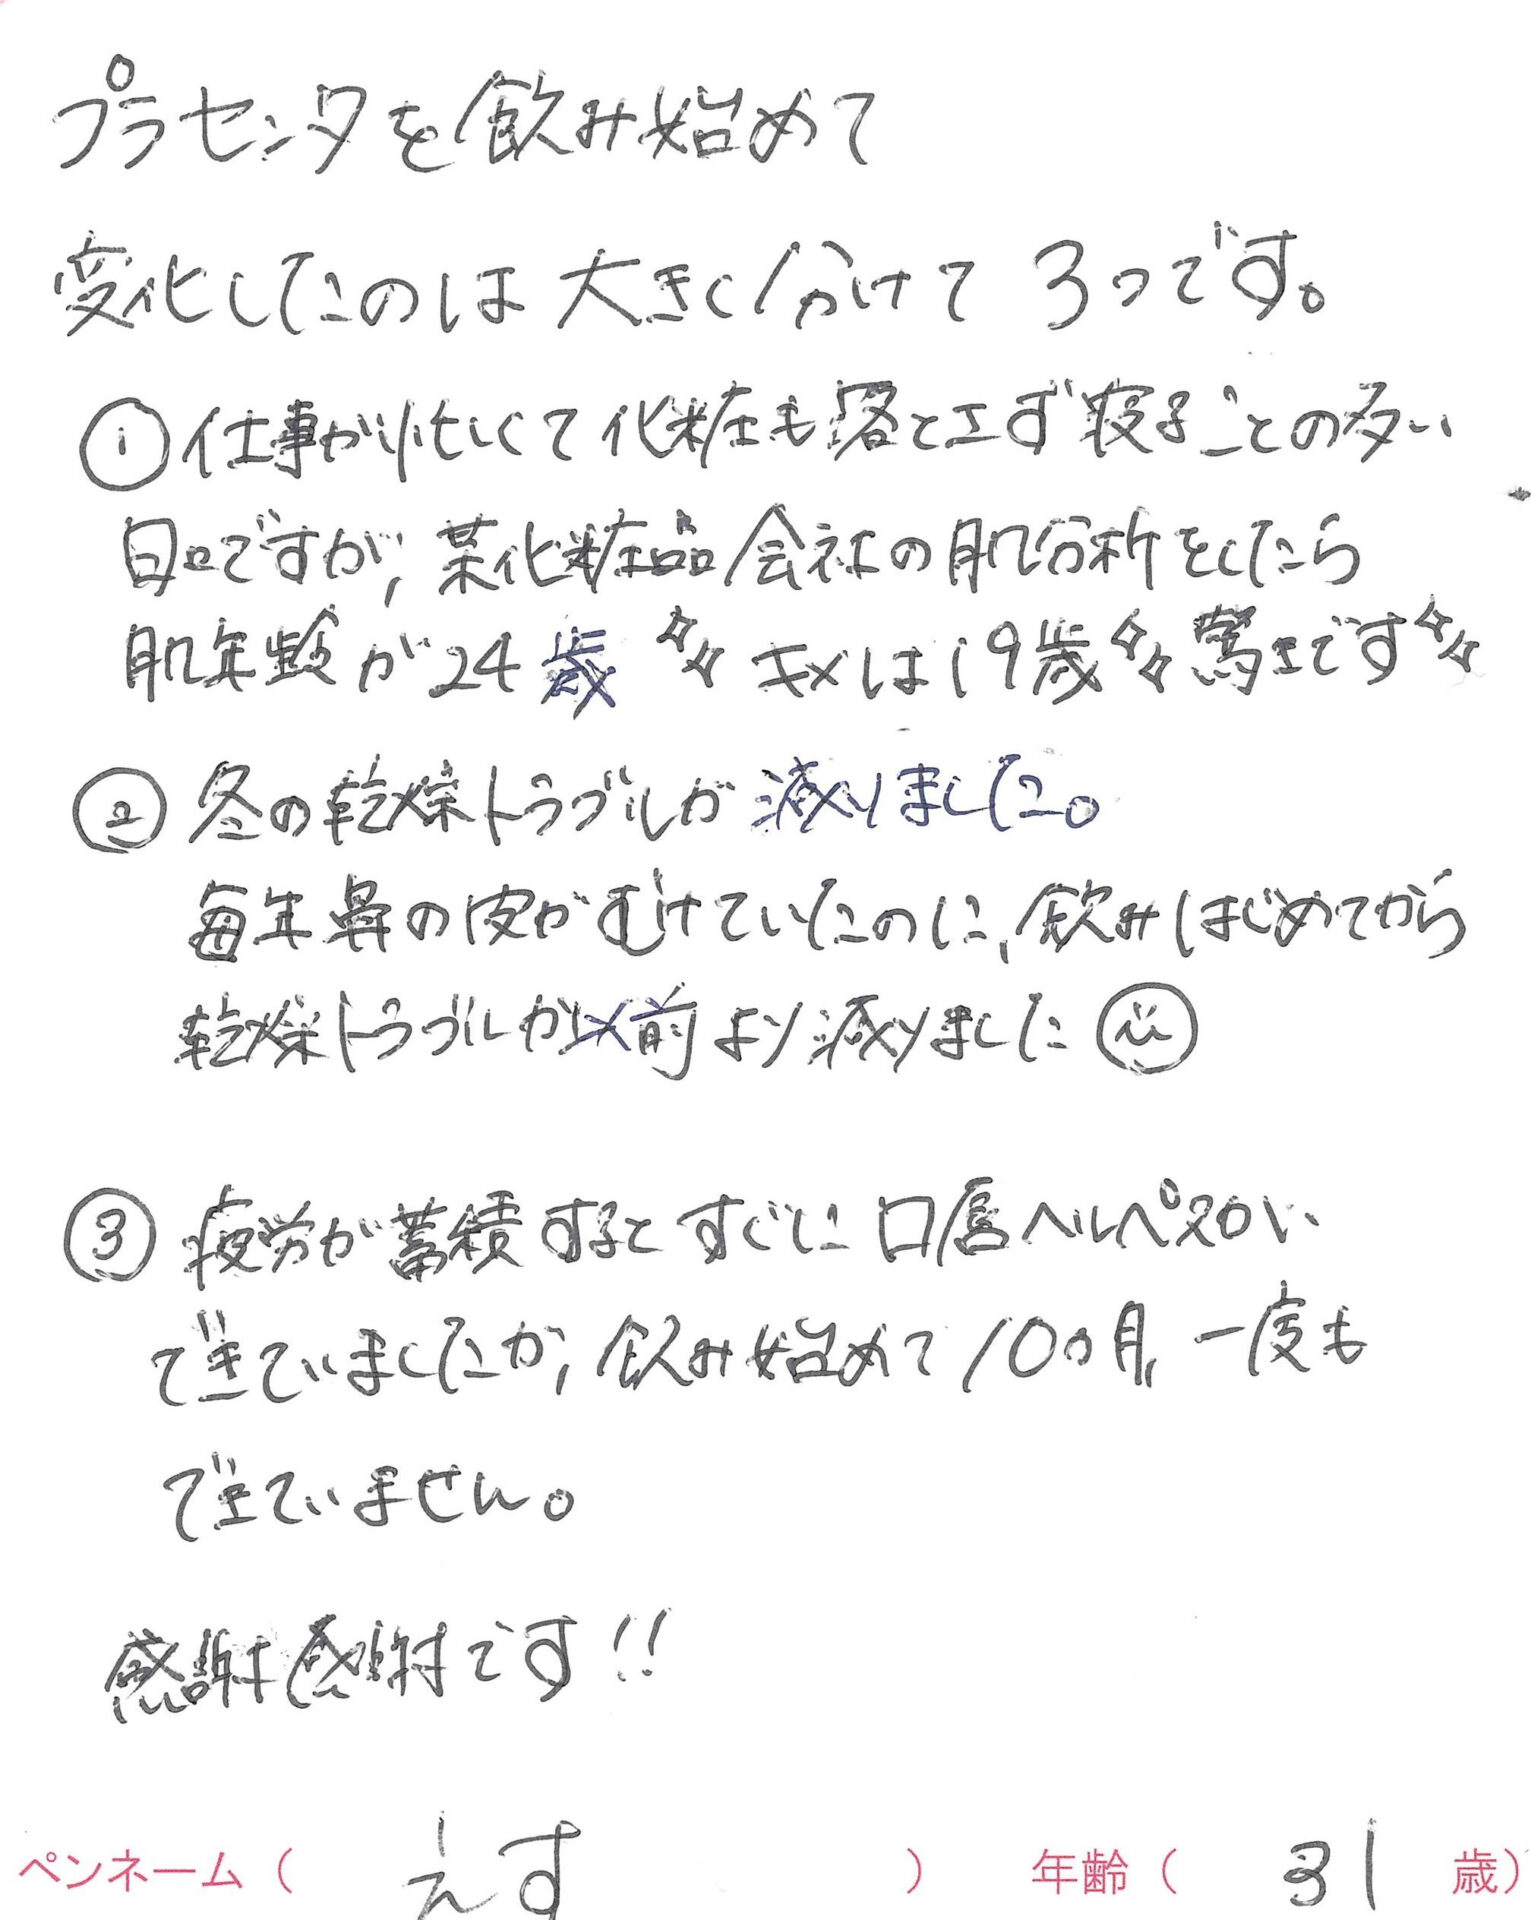 プラセンタを飲み始めて
変化したのは大きく分けて3つです。
①仕事が忙しくて化粧も落とさず寝ることの多い
日々ですが、某化粧品会社の肌分析をしたら
肌年齢が24歳 キメは19歳 驚きです
②冬の乾燥トラブルが減りました。
毎年鼻の皮がむけていたのに、飲みはじめてから
乾燥トラブルが以前より減りました
③疲労が蓄積するとすぐに口唇ヘルペスが
できていましたが、飲み始めて10ヵ月、一度も
できていません。
感謝感謝です!!
ペンネーム( えす ) 年齢( 31 歳)